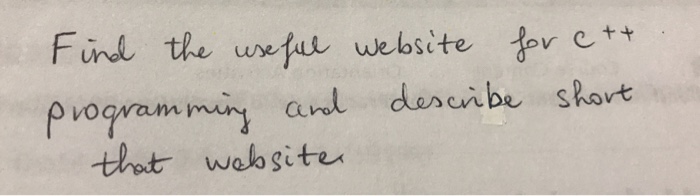 Find the useful website for c++
programming and describe short
that website